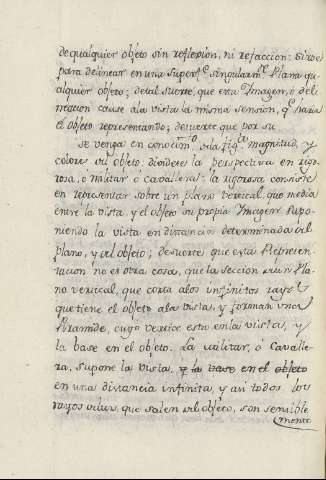 de qualquier objeto sin reflexion, ni refaccion: Sirve
para delinear en una Superf.e singularm.te Plana qu
alquier objeto; de tal suerte, que esta Imagen, ó deli
neacion cause a la vista la misma sension, q.e haria
el objeto representando; de suerte que por su
se venga en conocim.to de la fig.a magnitud, y
colores del objeto: dividese la perspectiva en rigo
rosa, ó militar ó cavallera: la rigorosa consiste
en representar sobre un plano vertical, que media
entre la vista, y el objeto su propia Imagen supo
niendo la vista en distancia determinada del
plano, y del objeto; de suerte que esta Represen
tacion no es otra cosa, que la seccion de un Pla
no vertical, que corta a los infinitos rayos
que tiene el objeto a la vista, y forman una
Piramide, cuyo vertice esta en la vista, y
la base en el objeto. La militar, ó Cavalle
ra, supone la vista, y la base en el objeto
en una distancia infinita, y asi todos los
rayos que salen del objeto, son sensible
mente